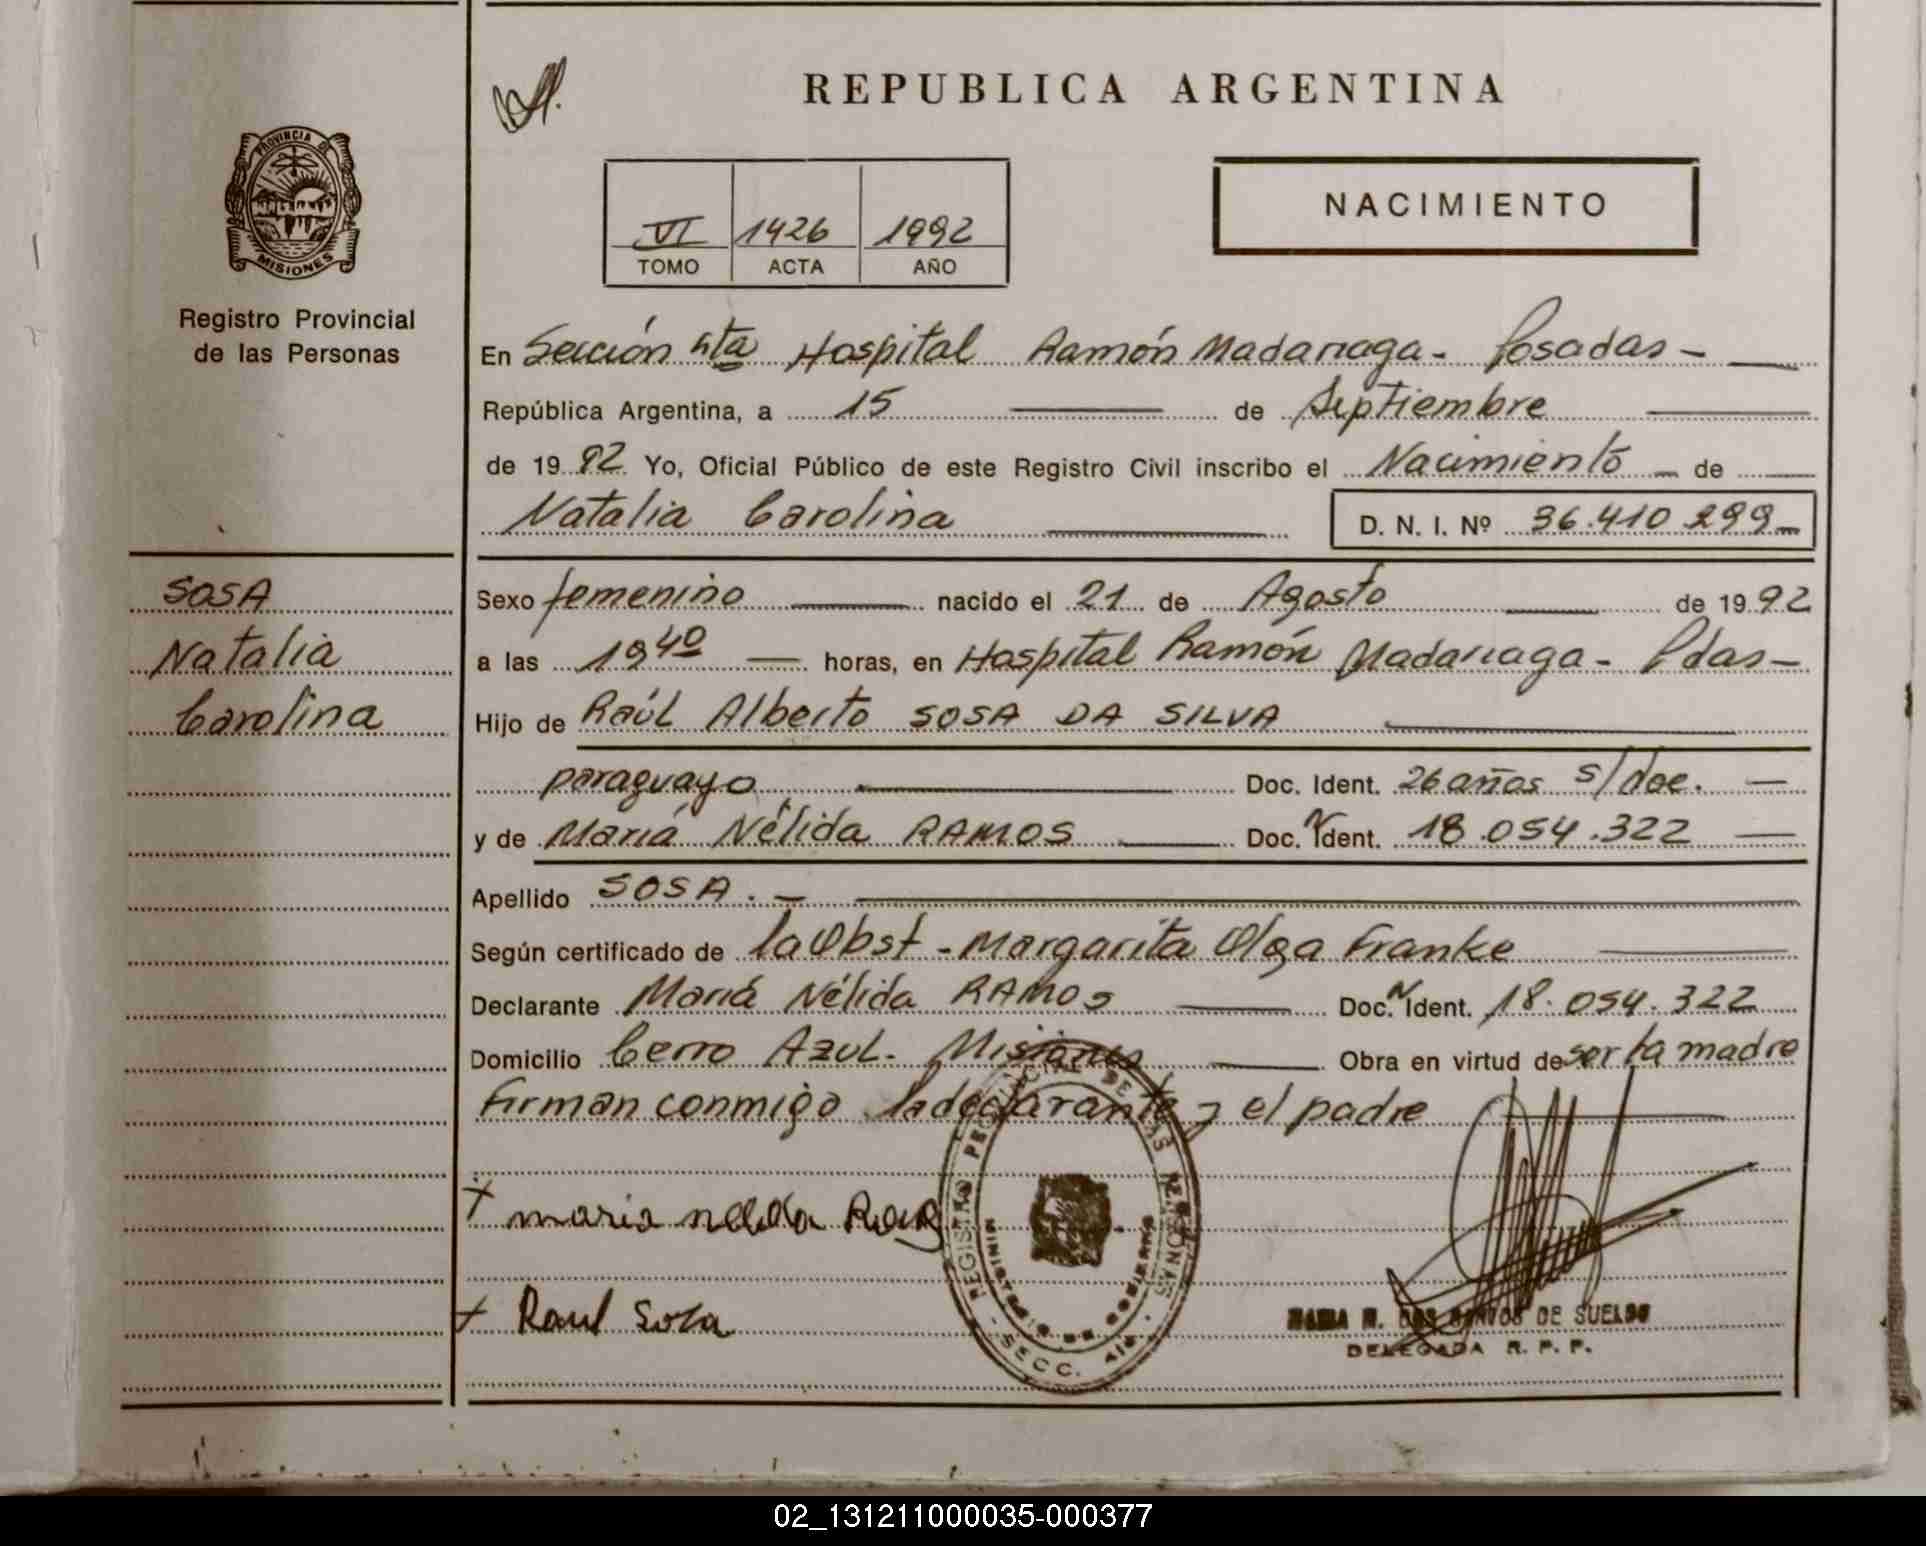 REPUBLICA ARGENTINA
PROVINCIA DE
MISIONES
Registro Provincial
de las Personas
VI 1426 1992
TOMO ACTA AÑO
NACIMIENTO
En Sección 4ta Hospital Ramón Madariaga - Posadas -
República Argentina, a 15 de Septiembre
de 19 92 Yo, Oficial Público de este Registro Civil inscribo el Nacimiento de
Natalia Carolina D. N. I. Nº 36.410.299
SOSA
Natalia
Carolina
Sexo femenino nacido el 21 de Agosto de 19 92
a las 19 40 horas, en Hospital Ramón Madariaga - Pdas -
Hijo de Raúl Alberto SOSA DA SILVA
paraguayo Doc. Ident. 26 años s/doc.
y de María Nélida RAMOS Doc. Ident. 18.054.322
Apellido SOSA. -
Según certificado de la Obst - Margarita Olga Franke
Declarante María Nélida RAMOS Doc. Ident. 18.054.322
Domicilio Cerro Azul - Misiones Obra en virtud de ser la madre
Firman conmigo la declarante y el padre
maria nelida
Raul Sosa
REGISTRO PROVINCIAL DE LAS PERSONAS
MINISTERIO DE GOBIERNO
SECC. 4ta
MARIA N. DOS SANTOS DE SUELDO
DELEGADA R. P. P.
02_131211000035-000377